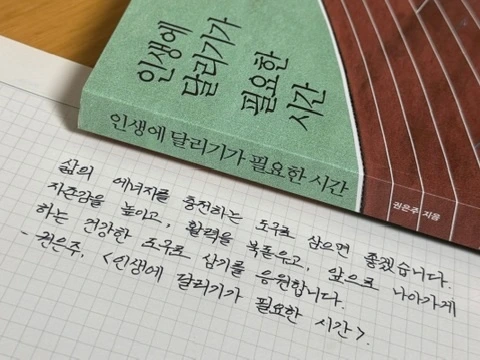 인생에
달리기가
필요한
시간
인생에 달리기가 필요한 시간
권은주 지음
삶의 에너지를 충전하는 도구로 삼으면 좋겠습니다.
자존감을 높이고, 활력을 북돋우고, 앞으로 나아가게
하는 건강한 도구로 삼기를 응원합니다.
- 권은주, <인생에 달리기가 필요한 시간>.